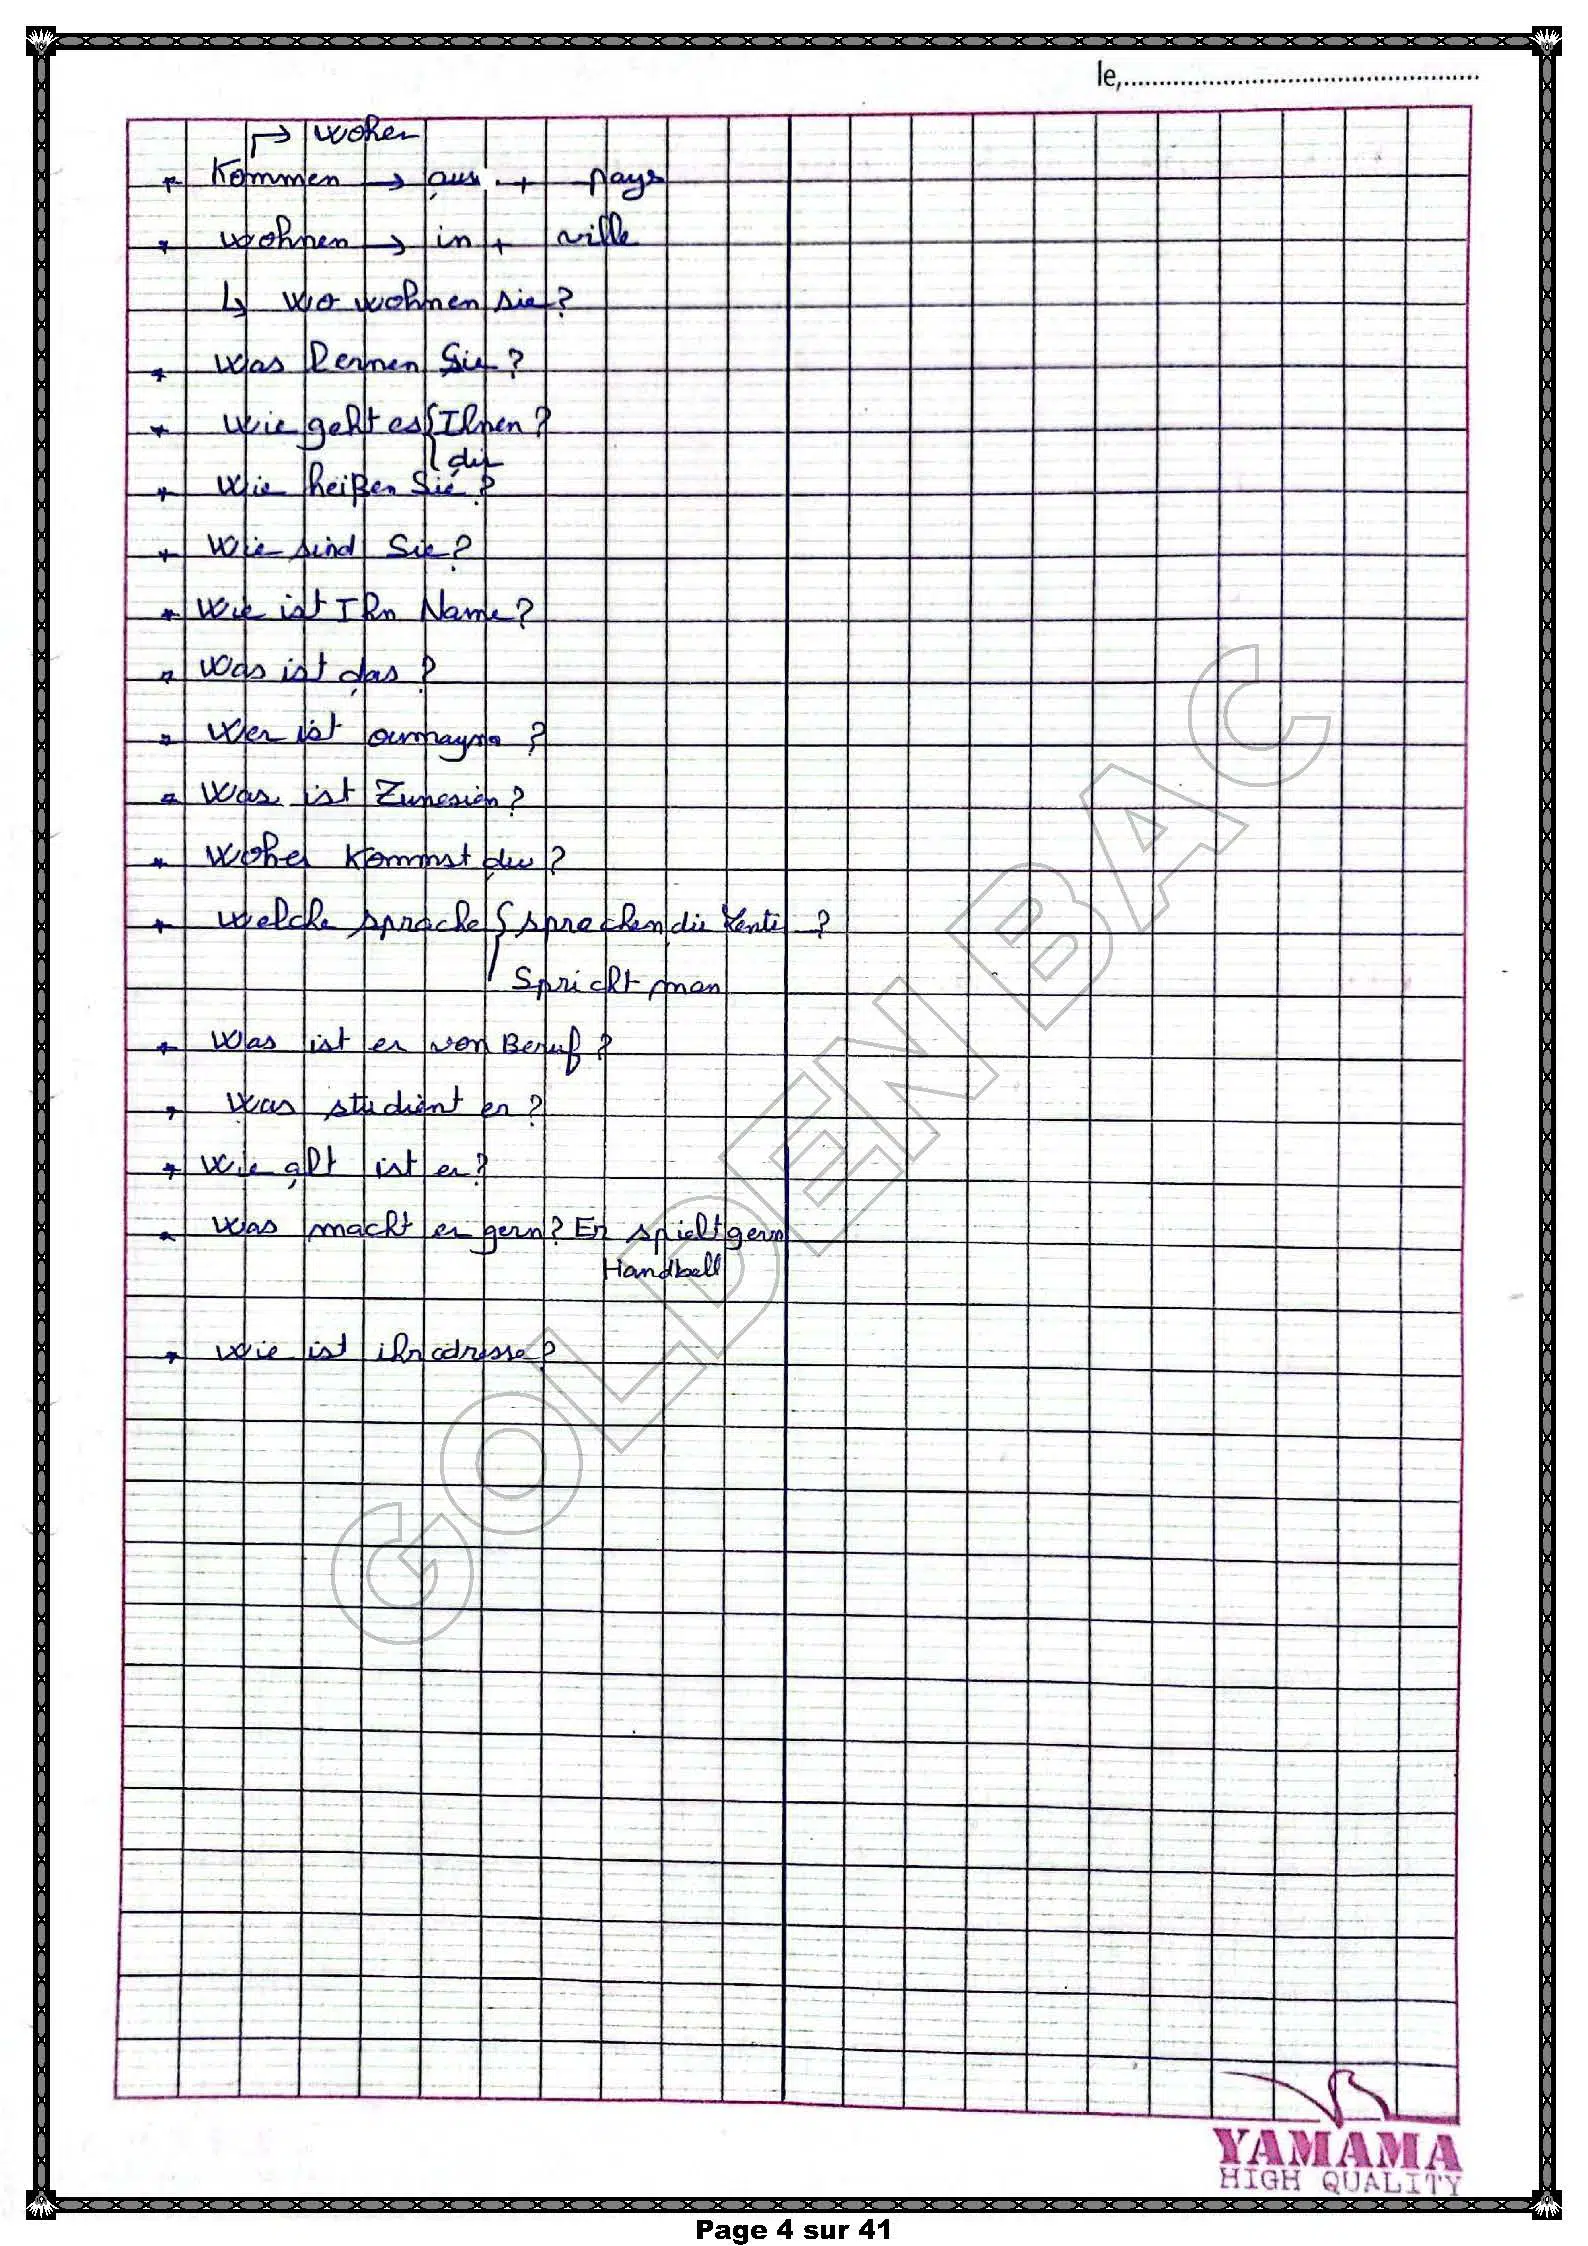 le,
→ woher
* Kommen → aus + pays
* wohnen → in + ville
↳ wo wohnen sie?
* was lernen Sie?
* wie geht es { Ihnen?
dir
* wie heißen Sie?
* Wie sind Sie?
* wie ist Ihr Name?
* was ist das?
* Wer ist oumayma?
* Was ist Tunesien?
* woher kommst du?
* welche sprache { sprechen die Leute ?
Spricht man
* Was ist er von Beruf?
* was studient er?
* wie alt ist er?
* was macht er gern? Er spielt gern
Handball
* wie ist ihr adresse?
GOLDEN BAC
YAMAMA
HIGH QUALITY
Page 4 sur 41